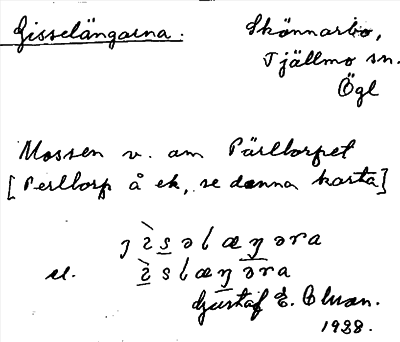 Gisselängarna.
Skönnarbo,
Tjällmo sn.
Ögl
Mossen v. om Pärltorpet
[Perltorp å ek, se denna karta]
el.
Gustaf E. Olson.
1938.